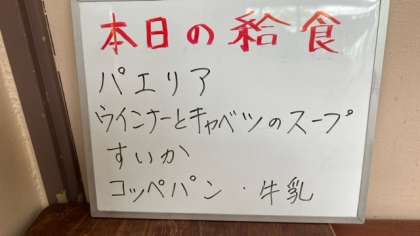 本日の給食
パエリア
ウインナーとキャベツのスープ
すいか
コッペパン・牛乳